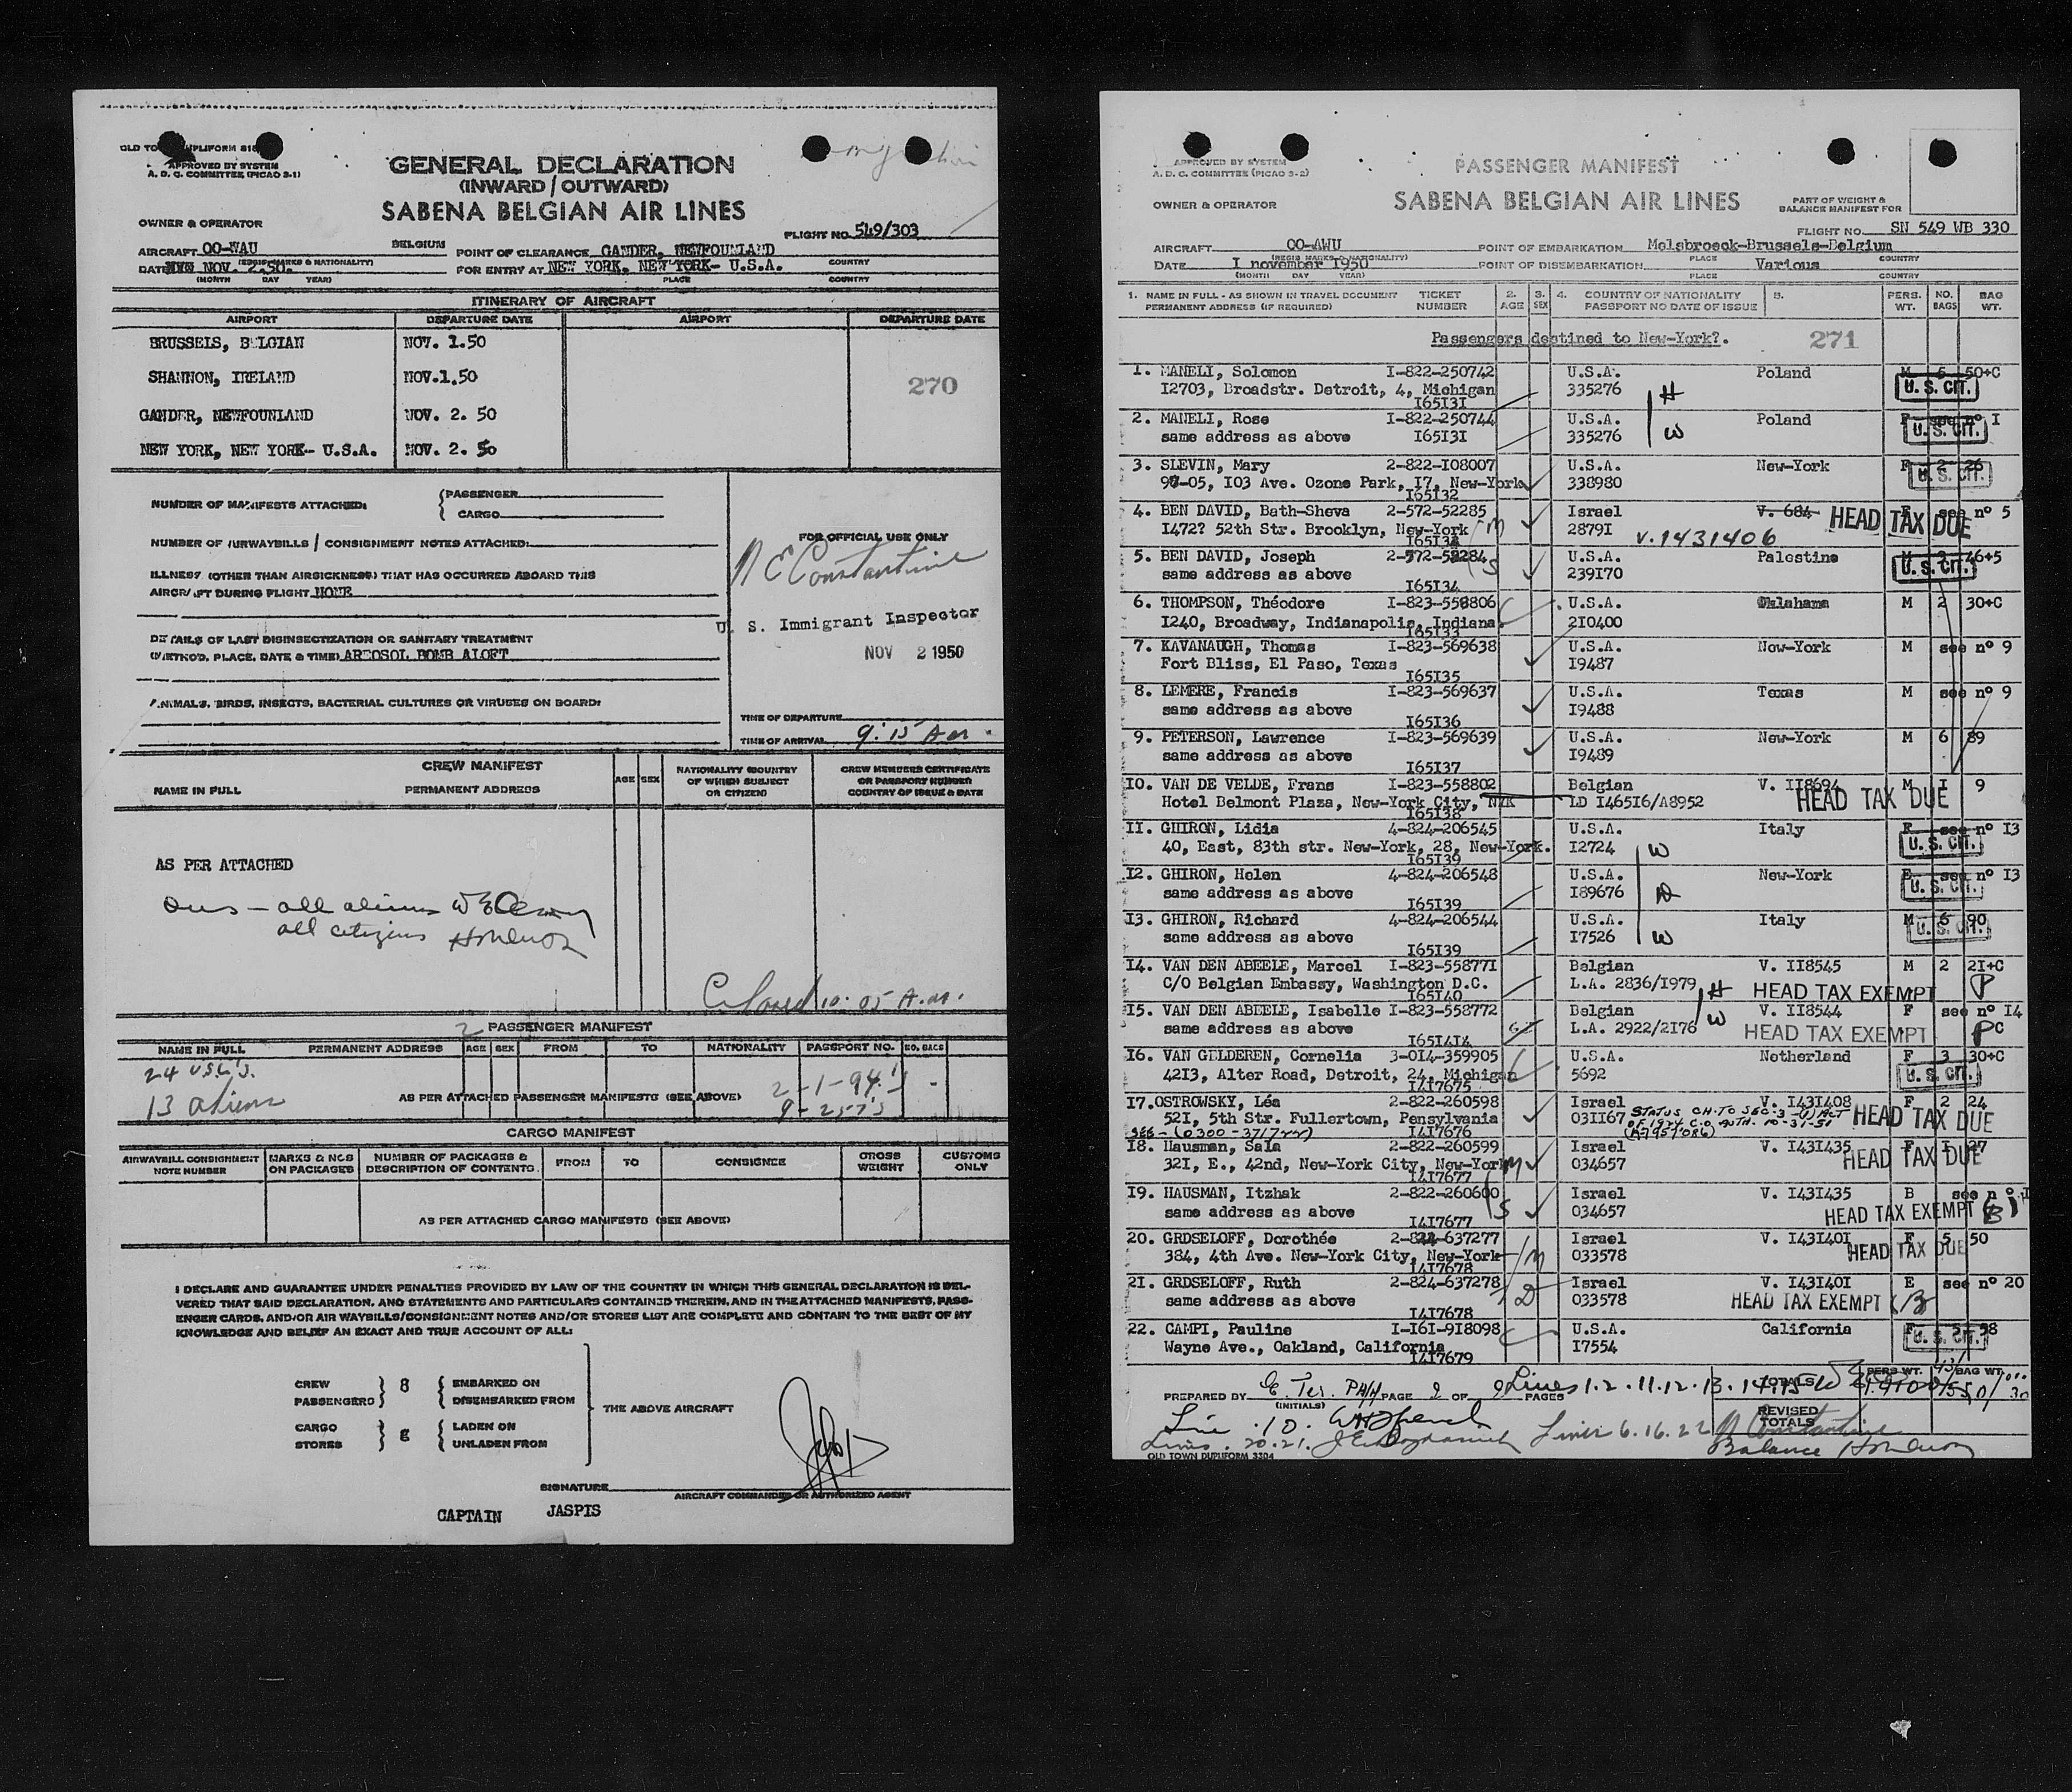 OLD TO
APPROVED BY SYSTEM
A. D. C. COMMITTEE (PICAO 3-1)
GENERAL DECLARATION
(INWARD / OUTWARD)
SABENA BELGIAN AIR LINES
OWNER & OPERATOR
FLIGHT NO. 549/303
AIRCRAFT OO-WAU BELGIUM POINT OF CLEARANCE GANDER, NEWFOUNLAND
(REGIS MARKS & NATIONALITY) COUNTRY
DATE NOV. 2.50. FOR ENTRY AT NEW YORK, NEW YORK- U.S.A.
(MONTH DAY YEAR) PLACE COUNTRY
ITINERARY OF AIRCRAFT
AIRPORT DEPARTURE DATE AIRPORT DEPARTURE DATE
BRUSSELS, BELGIAN NOV. 1.50
SHANNON, IRELAND NOV.1.50
270
GANDER, NEWFOUNLAND NOV. 2. 50
NEW YORK, NEW YORK- U.S.A. NOV. 2. 50
NUMBER OF MANIFESTS ATTACHED: PASSENGER
CARGO
FOR OFFICIAL USE ONLY
NUMBER OF AIRWAYBILLS / CONSIGNMENT NOTES ATTACHED:
N E Constantine
ILLNESS (OTHER THAN AIRSICKNESS) THAT HAS OCCURRED ABOARD THIS
AIRCRAFT DURING FLIGHT NONE
U. S. Immigrant Inspector
DETAILS OF LAST DISINSECTIZATION OR SANITARY TREATMENT
(METHOD, PLACE, DATE & TIME) AREOSOL BOMB ALOFT
NOV 2 1950
ANIMALS, BIRDS, INSECTS, BACTERIAL CULTURES OR VIRUSES ON BOARD:
TIME OF DEPARTURE
TIME OF ARRIVAL 9:15 Am.
CREW MANIFEST
NAME IN FULL PERMANENT ADDRESS AGE SEX NATIONALITY (COUNTRY OF WHICH SUBJECT OR CITIZEN) CREW MEMBERS CERTIFICATE OR PASSPORT NUMBER COUNTRY OF ISSUE & DATE
AS PER ATTACHED
all aliens
all citizens
10:05 A.m.
2 PASSENGER MANIFEST
NAME IN FULL PERMANENT ADDRESS AGE SEX FROM TO NATIONALITY PASSPORT NO. NO. BAGS
24 U.S.C's.
13 aliens
AS PER ATTACHED PASSENGER MANIFESTS (SEE ABOVE)
CARGO MANIFEST
AIRWAYBILL CONSIGNMENT NOTE NUMBER MARKS & NOS ON PACKAGES NUMBER OF PACKAGES & DESCRIPTION OF CONTENTS FROM TO CONSIGNEE GROSS WEIGHT CUSTOMS ONLY
AS PER ATTACHED CARGO MANIFESTS (SEE ABOVE)
I DECLARE AND GUARANTEE UNDER PENALTIES PROVIDED BY LAW OF THE COUNTRY IN WHICH THIS GENERAL DECLARATION IS DEL-
VERED THAT SAID DECLARATION, AND STATEMENTS AND PARTICULARS CONTAINED THEREIN, AND IN THE ATTACHED MANIFESTS, PASS-
ENGER CARDS, AND/OR AIR WAYBILLS/CONSIGNMENT NOTES AND/OR STORES LIST ARE COMPLETE AND CONTAIN TO THE BEST OF MY
KNOWLEDGE AND BELIEF AN EXACT AND TRUE ACCOUNT OF ALL:
CREW 8 EMBARKED ON
PASSENGERS DISEMBARKED FROM
THE ABOVE AIRCRAFT
CARGO & LADEN ON
STORES UNLADEN FROM
SIGNATURE
AIRCRAFT COMMANDER OR AUTHORIZED AGENT
CAPTAIN JASPIS
APPROVED BY SYSTEM
A. D. C. COMMITTEE (PICAO 3-2)
PASSENGER MANIFEST
SABENA BELGIAN AIR LINES
OWNER & OPERATOR
PART OF WEIGHT & BALANCE MANIFEST FOR
FLIGHT NO. SN 549 WB 330
AIRCRAFT OO-AWU POINT OF EMBARKATION Melsbroeck-Brussels-Belgium
(REGIS MARKS & NATIONALITY) PLACE COUNTRY
DATE I november 1950 POINT OF DISEMBARKATION Various
(MONTH DAY YEAR) PLACE COUNTRY
1. NAME IN FULL - AS SHOWN IN TRAVEL DOCUMENT TICKET 2. 3. 4. COUNTRY OF NATIONALITY 5. PERS. NO. BAG
PERMANENT ADDRESS (IF REQUIRED) NUMBER AGE SEX PASSPORT NO DATE OF ISSUE WT. BAGS WT.
Passengers destined to New-York?. 271
1. MANELI, Solomon I-822-250742 U.S.A. Poland M 5 50+C
I2703, Broadstr. Detroit, 4, Michigan 335276 H U. S. CIT.
I65I3I
2. MANELI, Rose I-822-250744 U.S.A. Poland F see nº I
same address as above I65I3I 335276 W U. S. CIT.
3. SLEVIN, Mary 2-822-I08007 U.S.A. New-York F 2 26
97-05, I03 Ave. Ozone Park, I7, New-York 338980 U. S. CIT.
I65I32
4. BEN DAVID, Bath-Sheva 2-572-52285 Israel V. 684 HEAD TAX DUE see nº 5
I472? 52th Str. Brooklyn, New-York M 2879I V.1431406
I65I34
5. BEN DAVID, Joseph 2-572-52284 U.S.A. Palestine M 3 46+5
same address as above S 239I70 U. S. CIT.
I65I34
6. THOMPSON, Théodore I-823-558806 U.S.A. Oklahama M 2 30+C
I240, Broadway, Indianapolis, Indiana. 2I0400
I65I33
7. KAVANAUGH, Thomas I-823-569638 U.S.A. New-York M see nº 9
Fort Bliss, El Paso, Texas I9487
I65I35
8. LEMERE, Francis I-823-569637 U.S.A. Texas M see nº 9
same address as above I9488
I65I36
9. PETERSON, Lawrence I-823-569639 U.S.A. New-York M 6 89
same address as above I9489
I65I37
I0. VAN DE VELDE, Frans I-823-558802 Belgian V. II8694 M I 9
Hotel Belmont Plaza, New-York City, NYK LD I465I6/A8952 HEAD TAX DUE
I65I38
II. GHIRON, Lidia 4-824-206545 U.S.A. Italy F see nº I3
40, East, 83th str. New-York, 28, New-York. I2724 W U. S. CIT.
I65I39
I2. GHIRON, Helen 4-824-206548 U.S.A. New-York E see nº I3
same address as above I89676 D U. S. CIT.
I65I39
I3. GHIRON, Richard 4-824-206544 U.S.A. Italy M 6 90
same address as above I7526 W U. S. CIT.
I65I39
I4. VAN DEN ABEELE, Marcel I-823-55877I Belgian V. II8545 M 2 2I+C
C/O Belgian Embassy, Washington D.C. L.A. 2836/I979 H HEAD TAX EXEMPT P
I65I40
I5. VAN DEN ABEELE, Isabelle I-823-558772 Belgian V. II8544 F see nº I4
same address as above L.A. 2922/2I76 W HEAD TAX EXEMPT P C
I65I4I4
I6. VAN GELDEREN, Cornelia 3-0I4-359905 U.S.A. Netherland F 3 30+C
42I3, Alter Road, Detroit, 24, Michigan 5692 U. S. CIT.
I4I7675
I7.OSTROWSKY, Léa 2-822-260598 Israel V. I43I408 F 2 24
52I, 5th Str. Fullertown, Pensylvania 03II67 STATUS CH. TO SEC. 3-(1) ACT HEAD TAX DUE
SEE-(0300-371722) I4I7676 OF 1924 C.O. AUTH. 10-31-51
I8. Hausman, Sala 2-822-260599 Israel V. I43I435 F I 27
32I, E., 42nd, New-York City, New-York M 034657 HEAD TAX DUE
I4I7677
I9. HAUSMAN, Itzhak 2-822-260600 Israel V. I43I435 B see n º I
same address as above S 034657 HEAD TAX EXEMPT
I4I7677
20. GRDSELOFF, Dorothée 2-824-637277 Israel V. I43I40I F 5 50
384, 4th Ave. New-York City, New-York M 033578 HEAD TAX DUE
I4I7678
2I. GRDSELOFF, Ruth 2-824-637278 Israel V. I43I40I E see nº 20
same address as above D 033578 HEAD TAX EXEMPT B
I4I7678
22. CAMPI, Pauline I-I6I-9I8098 U.S.A. California F 5 38
Wayne Ave., Oakland, California I7554 U. S. CIT.
I4I7679
PREPARED BY PAGE OF PAGES Lines 1.2.11.12.13.14.15 TOTALS PERS WT. BAG WT.
(INITIALS)
REVISED TOTALS
Line 10.
Lines 20.21. Lines 6.16.22 N Constantine
Balance
OLD TOWN DUPLIFORM 3304